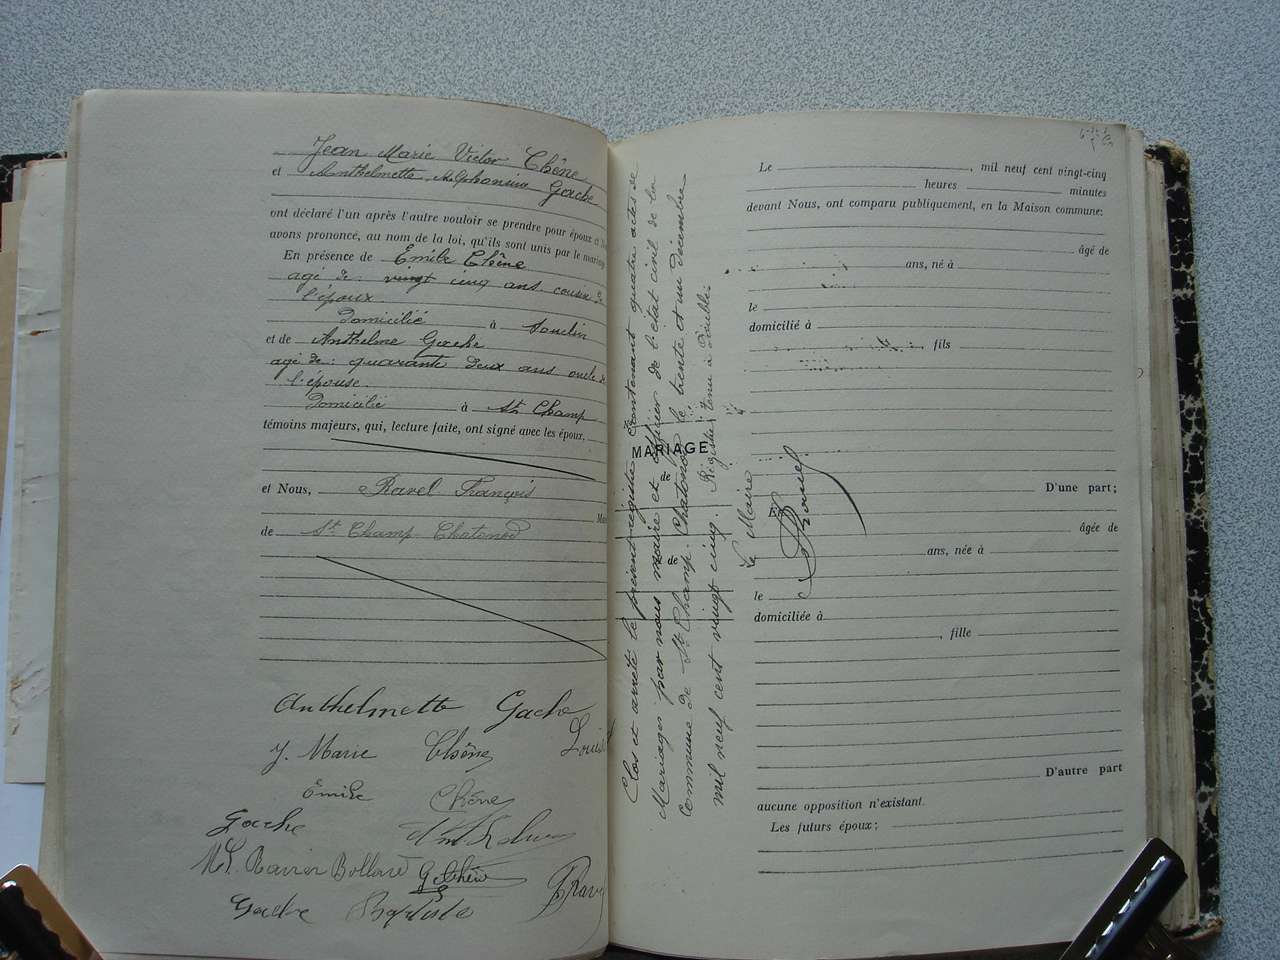 Jean Marie Victor Chêne
et Anthelmette Alphonsine Gache
ont déclaré l'un après l'autre vouloir se prendre pour époux et
avons prononcé, au nom de la loi, qu'ils sont unis par le mariage
En présence de Émile Chêne
agé de : vingt cinq ans cousin de
l'époux
domicilié à Soudin
et de Anthelme Gache
agé de : quarante deux ans oncle de
l'épouse.
domicilié à St Champ
témoins majeurs, qui, lecture faite, ont signé avec les époux,
et Nous, Ravel François
Ma
de St Champ Chatonod
Anthelmette Gache
J. Marie Chêne Louis
Émile Chêne
Gache Anthelme
M.L. Bollard G. Chêne
Gache Baptiste Ravel
Clos et arrêté le présent registre contenant quatre actes de
Mariages par nous maire et officier de l'état civil de la
Commune de St Champ-Chatonod le trente et un décembre
mil neuf cent vingt cinq. Registre tenu à double.
Le Maire
Ravel
MARIAGE
de
de
Le , mil neuf cent vingt-cinq
heures minutes
devant Nous, ont comparu publiquement, en la Maison commune:
âgé de
ans, né à
le
domicilié à
, fils
D'une part;
Et
âgée de
ans, née à
le
domiciliée à
, fille
D'autre part
aucune opposition n'existant.
Les futurs époux;